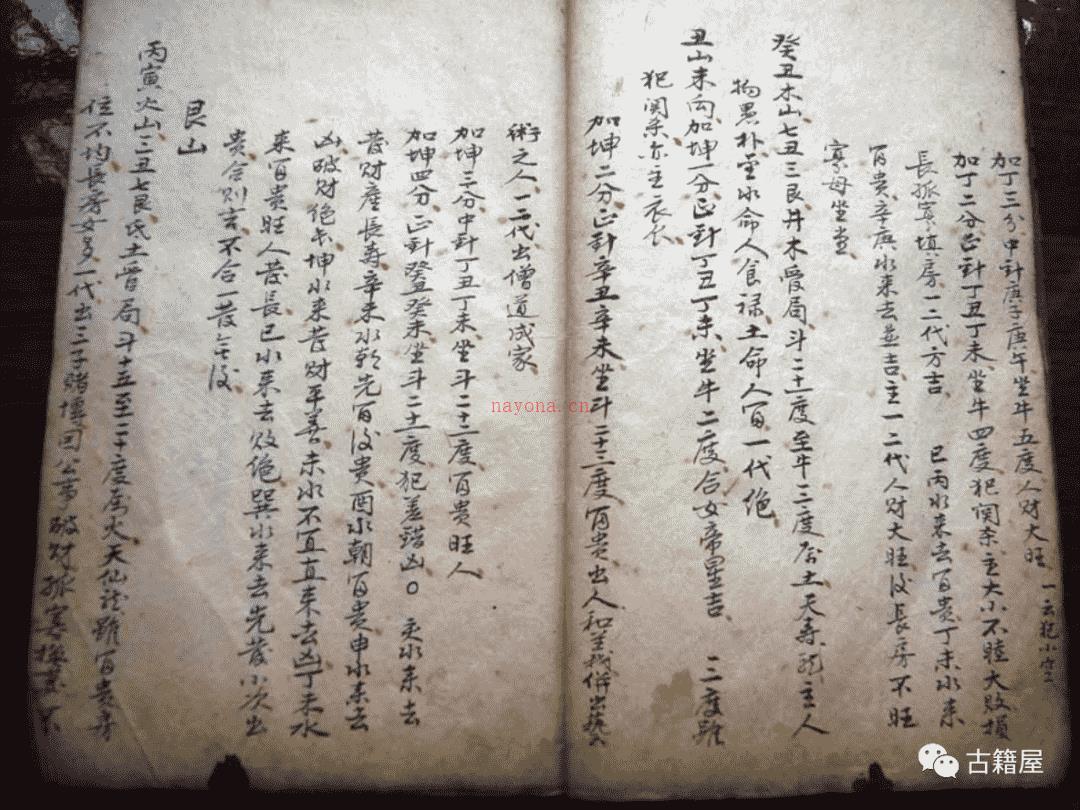 加丁三分中針庚子庚午坐牛五度人财大旺
一云犯小空
加丁二分正針丁丑丁未坐牛四度犯関杀主大小不睦大敗損
長孤寡填房一二代方吉
巳丙水来去百貴丁未水来
百貴辛庚水来去並吉主一二代人财大旺後長房不旺
寡母坐堂
癸丑木山七丑三艮井木受局斗二十二度至牛三度属土天寿龍主人
物愚朴坐水命人食禄土命人百一代绝
丑山未向加坤一分正針丁丑丁未坐牛二度合女帝星吉
三度雖
犯関杀亦主衣衣
加坤二分正針辛丑辛未坐斗二十三度百貴出人和並出藝
術之人一二代出僧道成家
加坤三分中針丁丑丁未坐斗二十三度百貴旺人
加坤四分正針癸丑癸未坐斗二十二度犯差錯凶○
水来去
發财產長寿辛未水乾先百後貴酉水朝百貴申水来去
凶破财绝坤水来發财平善未水不宜直来去凶丁未水
来百貴旺人發長巳水来去敗绝巽水来去先發小次出
貴合則言不合一發後
艮山
丙寅火山三丑七艮氐土晋局斗十五至二十度属火天仙龍雖百貴身
住不均長房女多一代出三子賭博因公事破财孤寡
nayona.cn
古籍屋